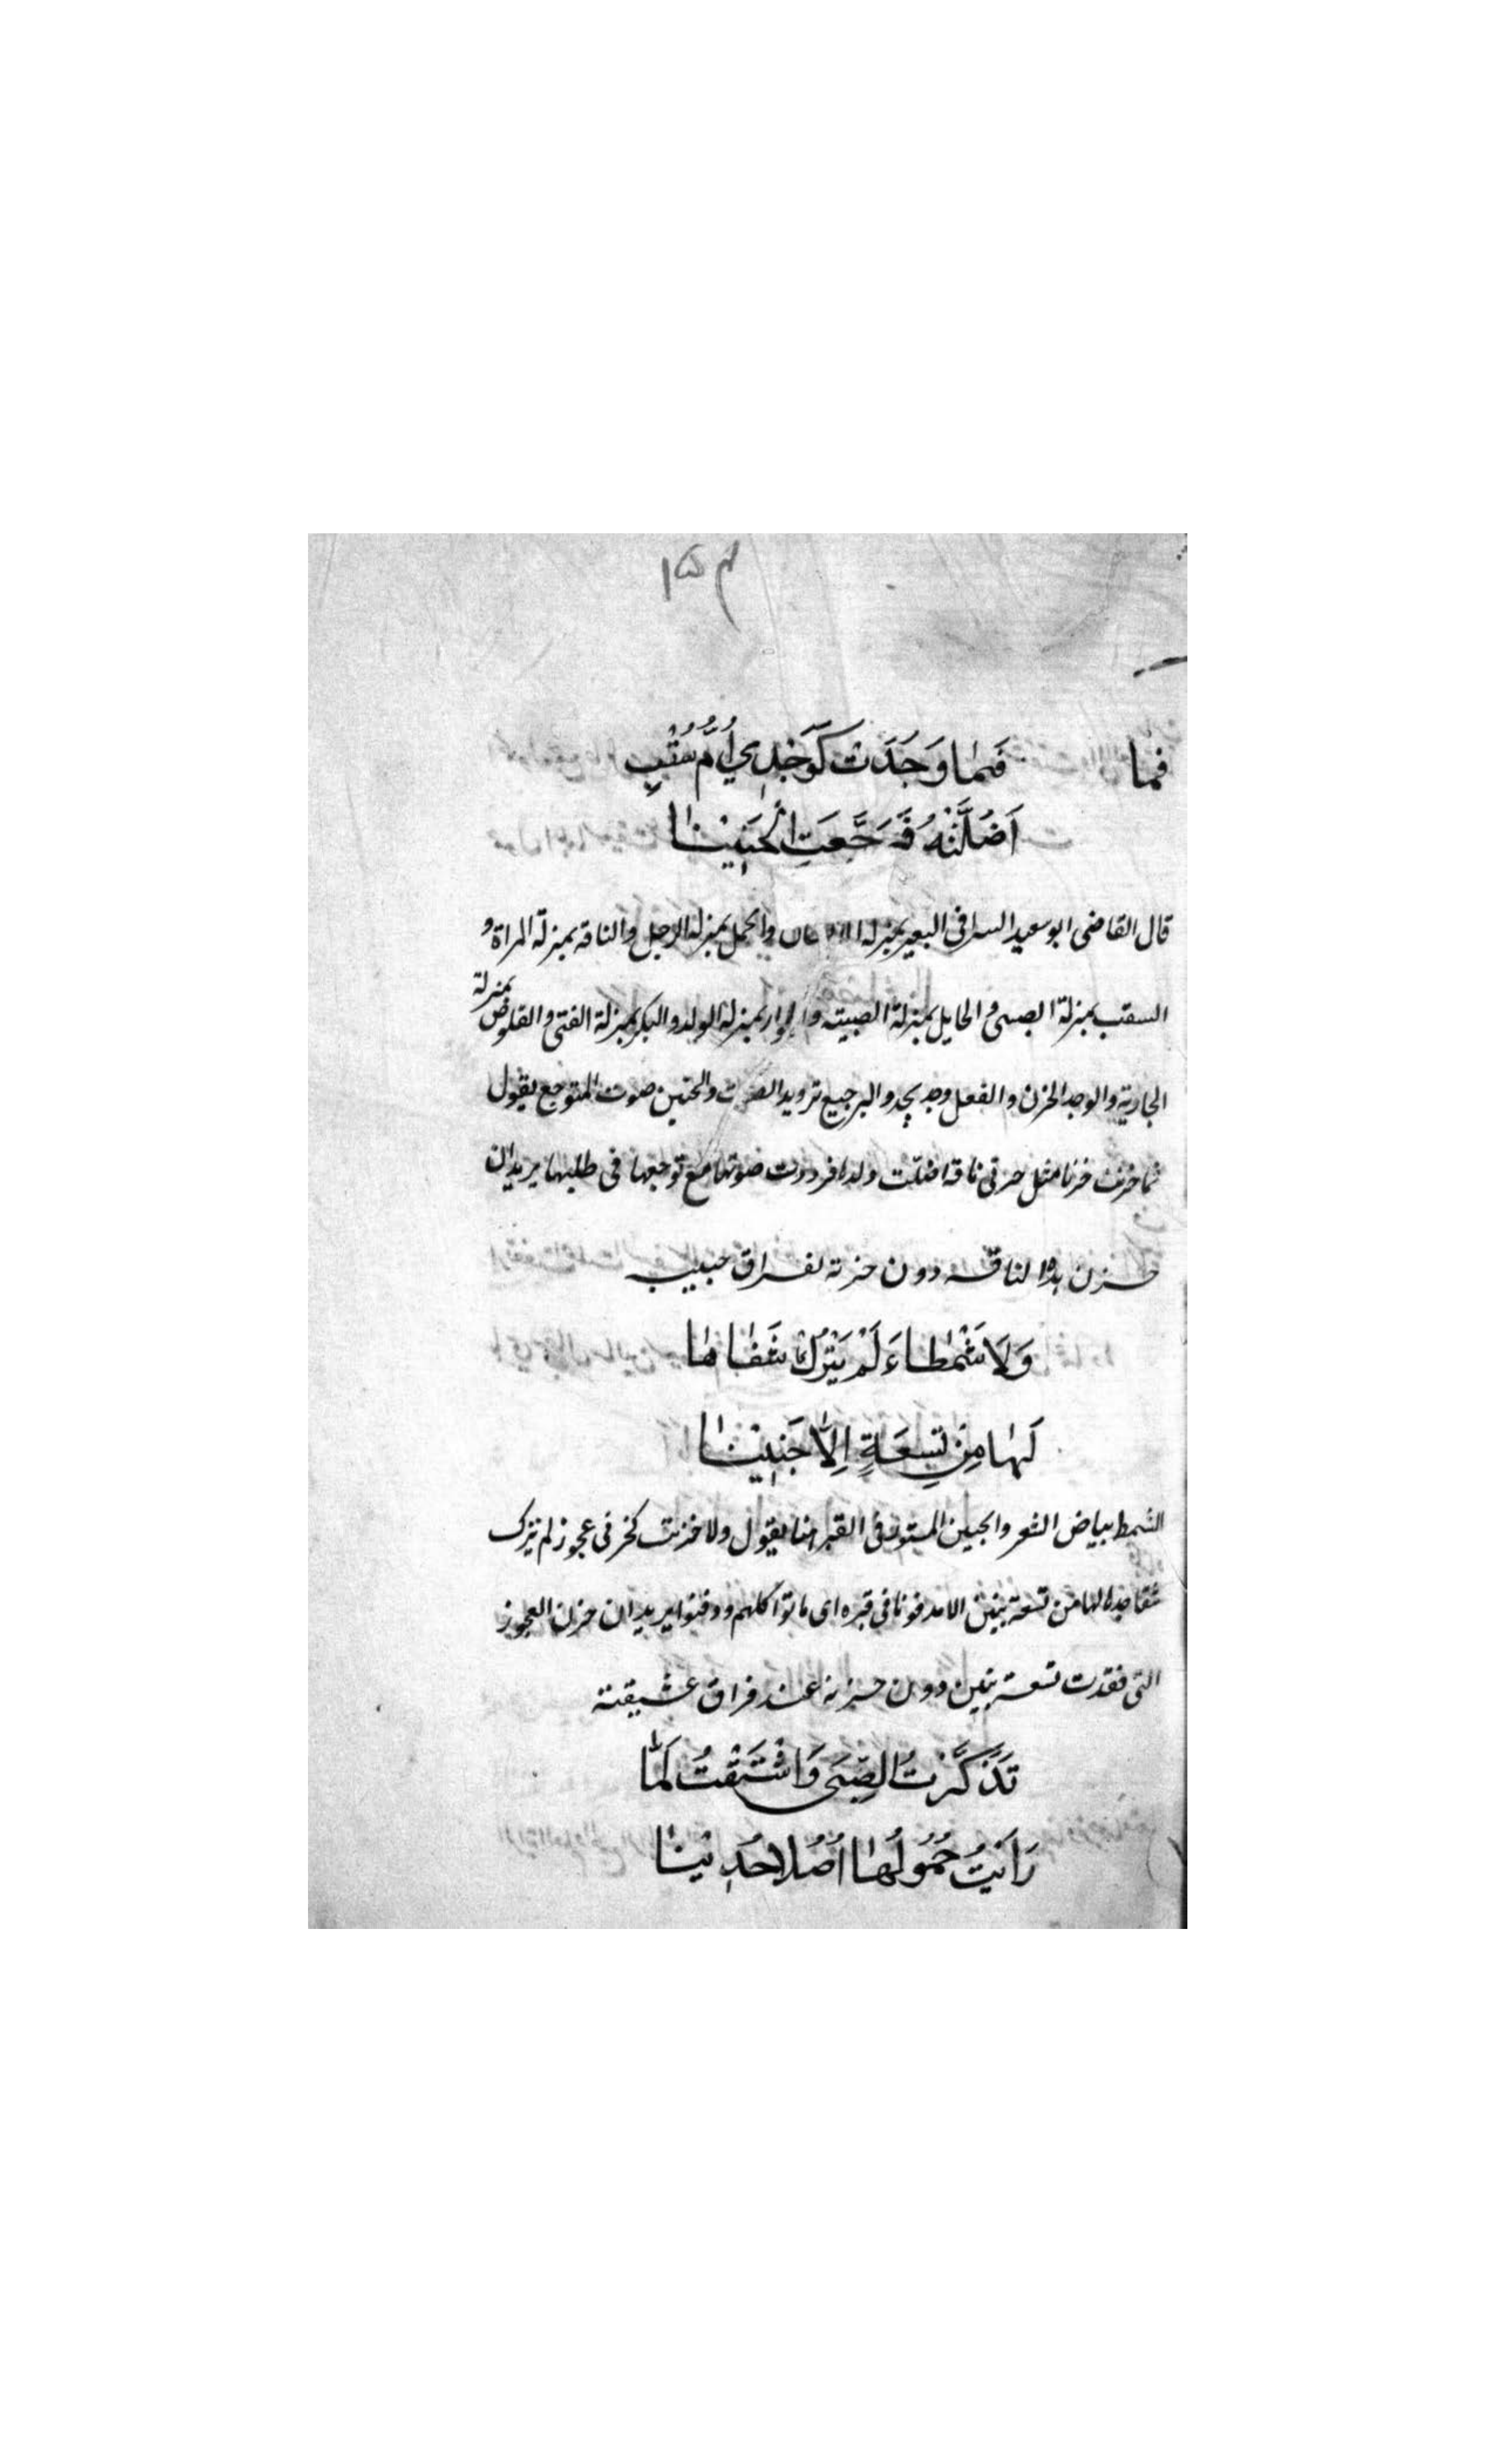 ١٥٤
فما فَمَا وَجَدَتْ كَوَجْدِي أُمُّ سَقْبٍ
اَضَلَّتْهُ فَرَجَّعَتِ الْحَنِيْنَا
قال القاضى ابو سعيد السرافى البعير بمنزلة والجمل بمنزلة الرجل والناقة بمنزلة المراة و
السقب بمنزلة الصبى والحايل بمنزلة الصبيته والحوار بمنزلة الولد والبكر بمنزلة الفتى والقلوص بمنزلة
الجارية والوجد الحزن والفعل وجد يجد والترجيع ترديد الصوت والحنين صوت المتوجع يقول
فما حزنت حزنا مثل حزنى ناقة اضلت ولدا فرددت صوتها مع توجعها فى طلبها يريد ان
حزن هذا الناقة دون حزنه لفراق حبيبه
وَلَا شَمْطَاءَ لَمْ يَتْرُكْ شَقَاهَا
لَهَا مِنْ تِسْعَةٍ اِلَّا جَنِيْنَا
الشمط بياض الشعر والجنين المستور فى القبر هنا يقول ولا حزنت كحزنى عجوز لم يترك
شقا جدها لها من تسعة بنين الا مدفونا فى قبره اى ماتوا كلهم ودفنوا يريد ان حزن العجوز
التى فقدت تسعة بنين دون حزنه عند فراق عشيقته
تَذَكَّرْتُ الصِّبَى وَاشْتَقْتُ لَمَّا
رَاَيْتُ حُمُوْلَهَا اُصُلًا حُدِيْنَا